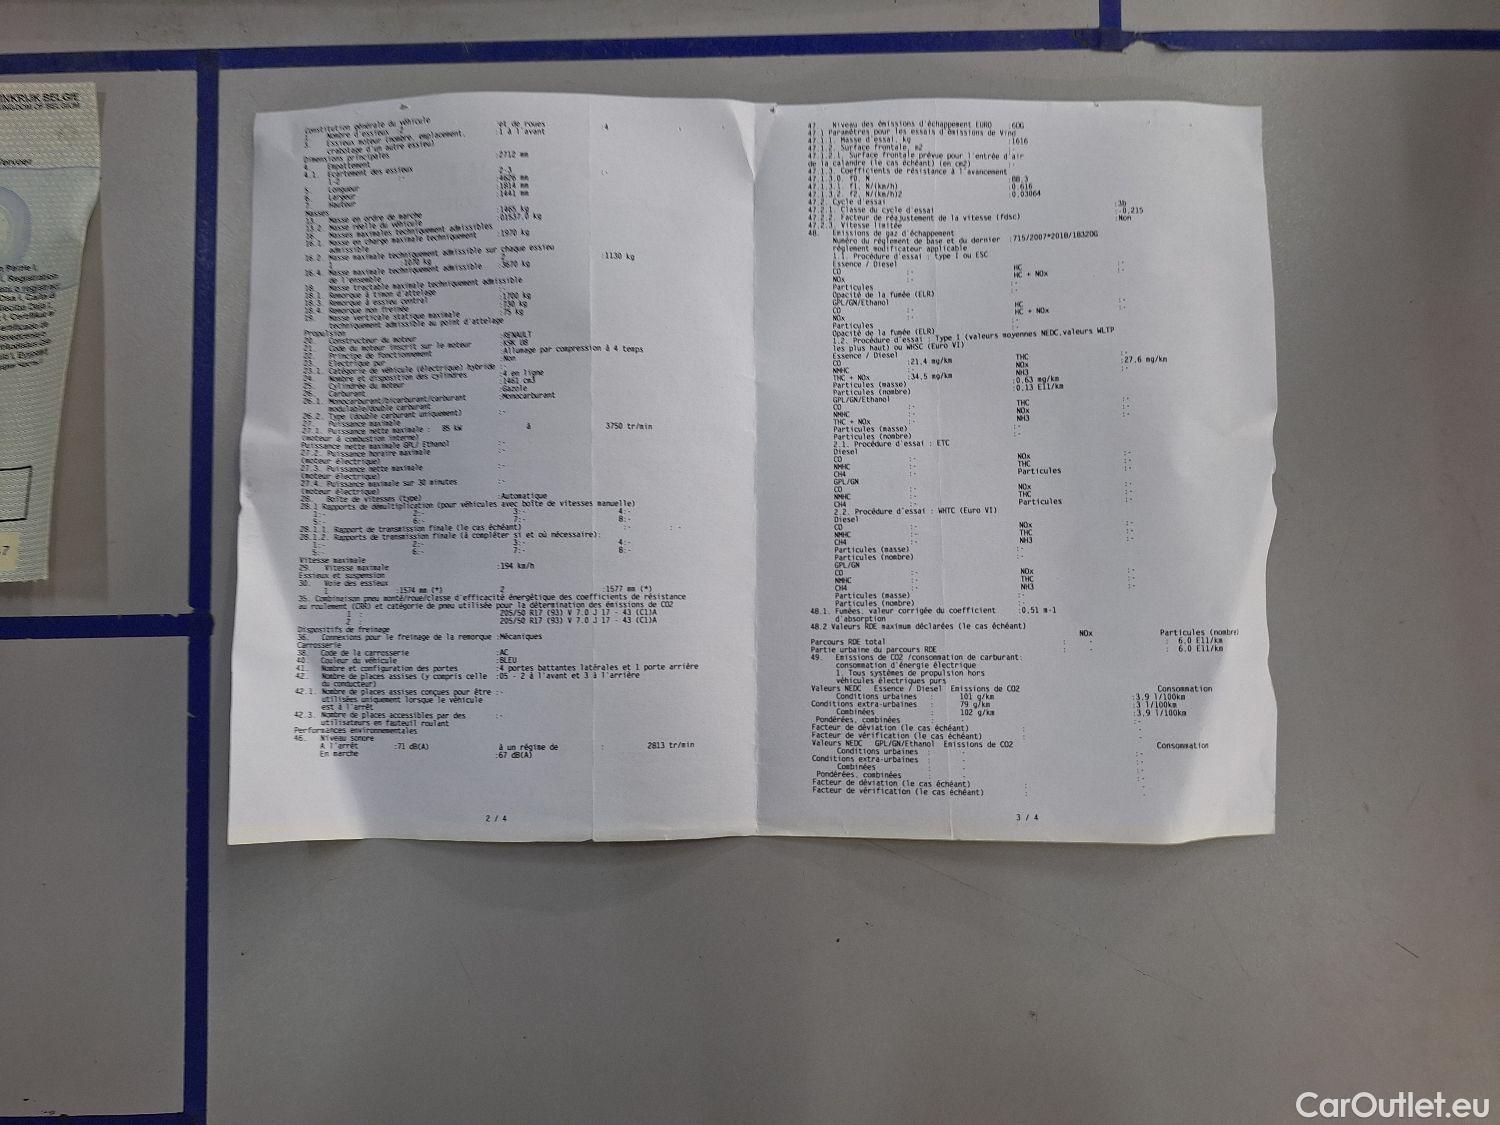 INKRIJK BELGIE
KINGDOM OF BELGIUM
Constitution générale du véhicule
1. Nombre d'essieux :2 et de roues :4
3. Essieux moteur (nombre, emplacement, :1 à l'avant
crabotage d'un autre essieu)
Dimensions principales
4. Empattement :2712 mm
4.1. Ecartement des essieux
1-2 :- 2-3 :-
5. Longueur :4626 mm
6. Largeur :1814 mm
7. Hauteur :1441 mm
Masses
13. Masse en ordre de marche :1465 kg
13.2. Masse réelle du véhicule :01537.0 kg
16. Masses maximales techniquement admissibles
16.1. Masse en charge maximale techniquement :1970 kg
admissible
16.2. Masse maximale techniquement admissible sur chaque essieu
1 1070 kg 2 :1130 kg
16.4. Masse maximale techniquement admissible :3670 kg
de l'ensemble
18. Masse tractable maximale techniquement admissible
18.1. Remorque à timon d'attelage :1700 kg
18.3. Remorque à essieu central :1700 kg
18.4. Remorque non freinée :730 kg
19. Masse verticale statique maximale :75 kg
techniquement admissible au point d'attelage
Propulsion
20. Constructeur du moteur :RENAULT
21. Code du moteur inscrit sur le moteur :K9K U8
22. Principe de fonctionnement :Allumage par compression à 4 temps
23. Electrique pur :Non
23.1. Catégorie de véhicule (électrique) hybride :-
24. Nombre et disposition des cylindres :4 en ligne
25. Cylindrée du moteur :1461 cm3
26. Carburant :Gazole
26.1. Monocarburant/bicarburant/carburant :Monocarburant
modulable/double carburant
26.2. Type (double carburant uniquement) :-
27. Puissance maximale
27.1. Puissance nette maximale : 85 kW à 3750 tr/min
(moteur à combustion interne)
Puissance nette maximale GPL/ Ethanol :-
27.2. Puissance horaire maximale :-
(moteur électrique)
27.3. Puissance nette maximale :-
(moteur électrique)
27.4. Puissance maximale sur 30 minutes :-
(moteur électrique)
28. Boîte de vitesses (type) :Automatique
28.1 Rapports de démultiplication (pour véhicules avec boîte de vitesses manuelle)
1:- 2:- 3:- 4:-
5:- 6:- 7:- 8:-
28.1.1. Rapport de transmission finale (le cas échéant) :- :-
28.1.2. Rapports de transmission finale (à compléter si et où nécessaire):
1:- 2:- 3:- 4:-
5:- 6:- 7:- 8:-
Vitesse maximale
29. Vitesse maximale :194 km/h
Essieux et suspension
30. Voie des essieux
1 :1574 mm (*) 2 :1577 mm (*)
35. Combinaison pneu monté/roue/classe d'efficacité énergétique des coefficients de résistance
au roulement (CRR) et catégorie de pneu utilisée pour la détermination des émissions de CO2
1 : 205/50 R17 (93) V 7.0 J 17 - 43 (C1)A
2 : 205/50 R17 (93) V 7.0 J 17 - 43 (C1)A
Dispositifs de freinage
36. Connexions pour le freinage de la remorque :Mécaniques
Carrosserie
38. Code de la carrosserie :AC
40. Couleur du véhicule :BLEU
41. Nombre et configuration des portes :4 portes battantes latérales et 1 porte arrière
42. Nombre de places assises (y compris celle :05 - 2 à l'avant et 3 à l'arrière
du conducteur)
42.1. Nombre de places assises conçues pour être :-
utilisées uniquement lorsque le véhicule
est à l'arrêt
42.3. Nombre de places accessibles par des :-
utilisateurs en fauteuil roulant
Performances environnementales
46. Niveau sonore
A l'arrêt :71 dB(A) à un régime de : 2813 tr/min
En marche :67 dB(A)
2 / 4
47. Niveau des émissions d'échappement EURO :6DG
47.1 Paramètres pour les essais d'émissions de Vind
47.1.1. Masse d'essai, kg :1616
47.1.2. Surface frontale, m2 :-
47.1.2.1. Surface frontale prévue pour l'entrée d'air
de la calandre (le cas échéant) (en cm2) :-
47.1.3. Coefficients de résistance à l'avancement
47.1.3.0. f0, N :88.3
47.1.3.1. f1, N/(km/h) :0.616
47.1.3.2. f2, N/(km/h)2 :0.03064
47.2. Cycle d'essai
47.2.1. Classe du cycle d'essai :3b
47.2.2. Facteur de réajustement de la vitesse (fdsc) :-0.215
47.2.3. Vitesse limitée :Non
48. Emissions de gaz d'échappement
Numéro du règlement de base et du dernier :715/2007*2018/1832DG
règlement modificateur applicable
1.1. Procédure d'essai : type I ou ESC
Essence / Diesel
CO :- HC :-
NOx :- HC + NOx :-
Particules :-
Opacité de la fumée (ELR) :-
GPL/GN/Ethanol
CO :- HC :-
NOx :- HC + NOx :-
Particules :-
Opacité de la fumée (ELR) :-
1.2. Procédure d'essai : Type I (valeurs moyennes NEDC,valeurs WLTP
les plus haut) ou WHSC (Euro VI)
Essence / Diesel
CO :21.4 mg/km THC :-
NMHC :- NOx :27.6 mg/km
THC + NOx :34.5 mg/km NH3 :-
Particules (masse) :0.63 mg/km
Particules (nombre) :0.13 E11/km
GPL/GN/Ethanol
CO :- THC :-
NMHC :- NOx :-
THC + NOx :- NH3 :-
Particules (masse) :-
Particules (nombre) :-
2.1. Procédure d'essai : ETC
Diesel
CO :- NOx :-
NMHC :- THC :-
CH4 :- Particules :-
GPL/GN
CO :- NOx :-
NMHC :- THC :-
CH4 :- Particules :-
2.2. Procédure d'essai : WHTC (Euro VI)
Diesel
CO :- NOx :-
NMHC :- THC :-
CH4 :- NH3 :-
Particules (masse) :-
Particules (nombre) :-
GPL/GN
CO :- NOx :-
NMHC :- THC :-
CH4 :- NH3 :-
Particules (masse) :-
Particules (nombre) :-
48.1. Fumées, valeur corrigée du coefficient :0.51 m-1
d'absorption
48.2 Valeurs RDE maximum déclarées (le cas échéant)
NOx Particules (nombre)
Parcours RDE total : - : 6.0 E11/km
Partie urbaine du parcours RDE : - : 6.0 E11/km
49. Emissions de CO2 /consommation de carburant:
consommation d'énergie électrique
1. Tous systèmes de propulsion hors
véhicules électriques purs
Valeurs NEDC Essence / Diesel Emissions de CO2 Consommation
Conditions urbaines : 101 g/km :3.9 l/100km
Conditions extra-urbaines : 79 g/km :3 l/100km
Combinées : 102 g/km :3.9 l/100km
Pondérées, combinées : - :-
Facteur de déviation (le cas échéant) : -
Facteur de vérification (le cas échéant) : -
Valeurs NEDC GPL/GN/Ethanol Emissions de CO2 Consommation
Conditions urbaines : - :-
Conditions extra-urbaines : - :-
Combinées : - :-
Pondérées, combinées : - :-
Facteur de déviation (le cas échéant) : -
Facteur de vérification (le cas échéant) : -
3 / 4
CarOutlet.eu